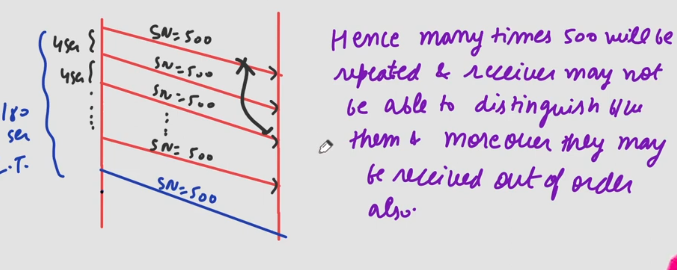 SN=500
4sec
SN=500
4sec
SN=500
180
sec
SN=500
L.T.
SN=500
Hence many times 500 will be
repeated & receiver may not
be able to distinguish b/w
them & moreover they may
be received out of order
also.